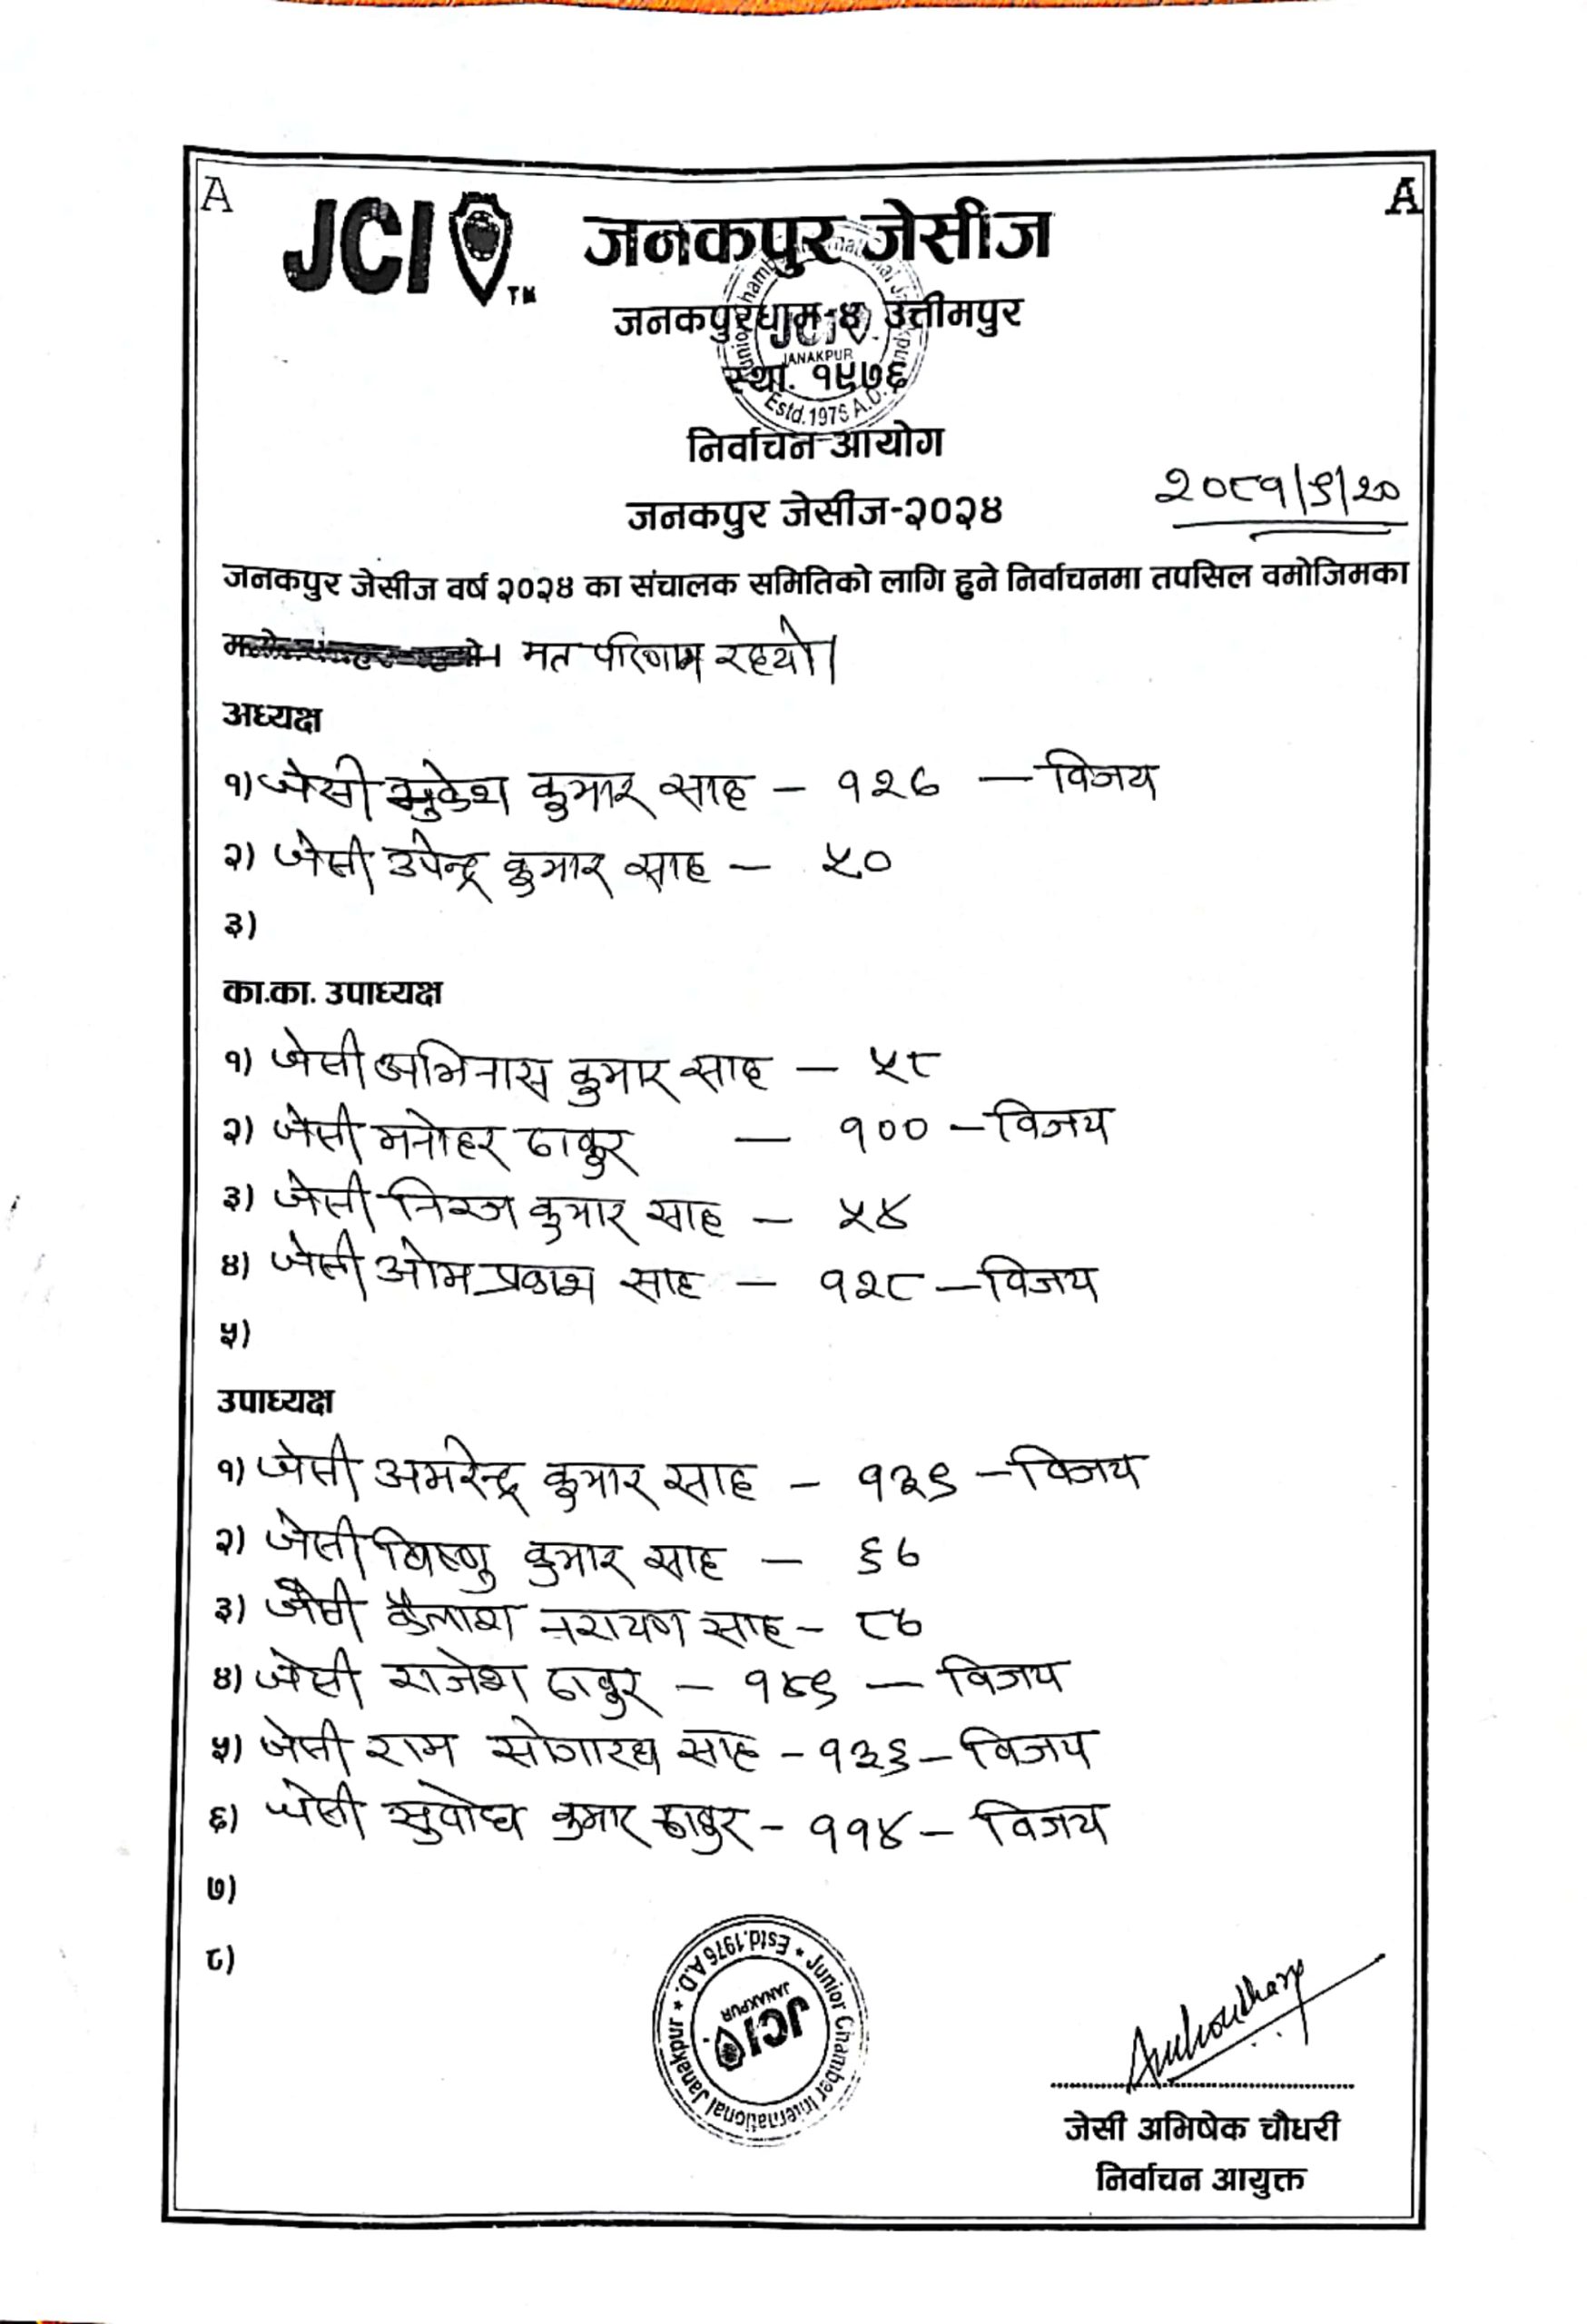 A
A
JCI TM
जनकपुर जेसीज
जनकपुरधाम-४, उत्तीमपुर
स्था. १९७६
JCI
JANAKPUR
Estd.1976 A.D.
निर्वाचन आयोग
जनकपुर जेसीज-२०२४
२०८१/९/२०
जनकपुर जेसीज वर्ष २०२४ का संचालक समितिको लागि हुने निर्वाचनमा तपसिल वमोजिमका
मत परिणाम रहयो।
अध्यक्ष
१) जेसी मुकेश कुमार साह - १२७ - विजय
२) जेसी उपेन्द्र कुमार साह - ५०
३)
का.का. उपाध्यक्ष
१) जेसी अभिनास कुमार साह - ५८
२) जेसी मनोहर ठाकुर - १०० - विजय
३) जेसी निरज कुमार साह - ५४
४) जेसी ओम प्रकाश साह - १२८ - विजय
५)
उपाध्यक्ष
१) जेसी अमरेन्द्र कुमार साह - १३९ - विजय
२) जेसी विष्णु कुमार साह - ६७
३) जेसी कैलाश नरायण साह - ८७
४) जेसी राजेश ठाकुर - १४९ - विजय
५) जेसी राम सोगारथ साह - १३६ - विजय
६) जेसी सुवोध कुमार ठाकुर - ११४ - विजय
७)
८)
Junior Chamber International Janakpur * Estd.1976 A.D. *
JCI
JANAKPUR
जेसी अभिषेक चौधरी
निर्वाचन आयुक्त